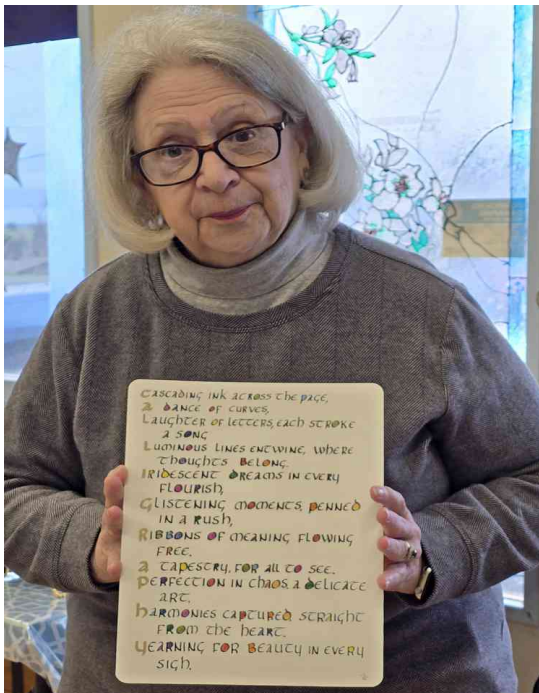 Cascading ink across the page,
a dance of curves,
Laughter of letters, each stroke
a song
Luminous lines entwine, where
thoughts belong.
Iridescent dreams in every
flourish,
Glistening moments, penned
in a rush,
Ribbons of meaning flowing
free.
a tapestry, for all to see.
Perfection in chaos, a delicate
art,
harmonies captured straight
from the heart.
Yearning for beauty in every
sigh.